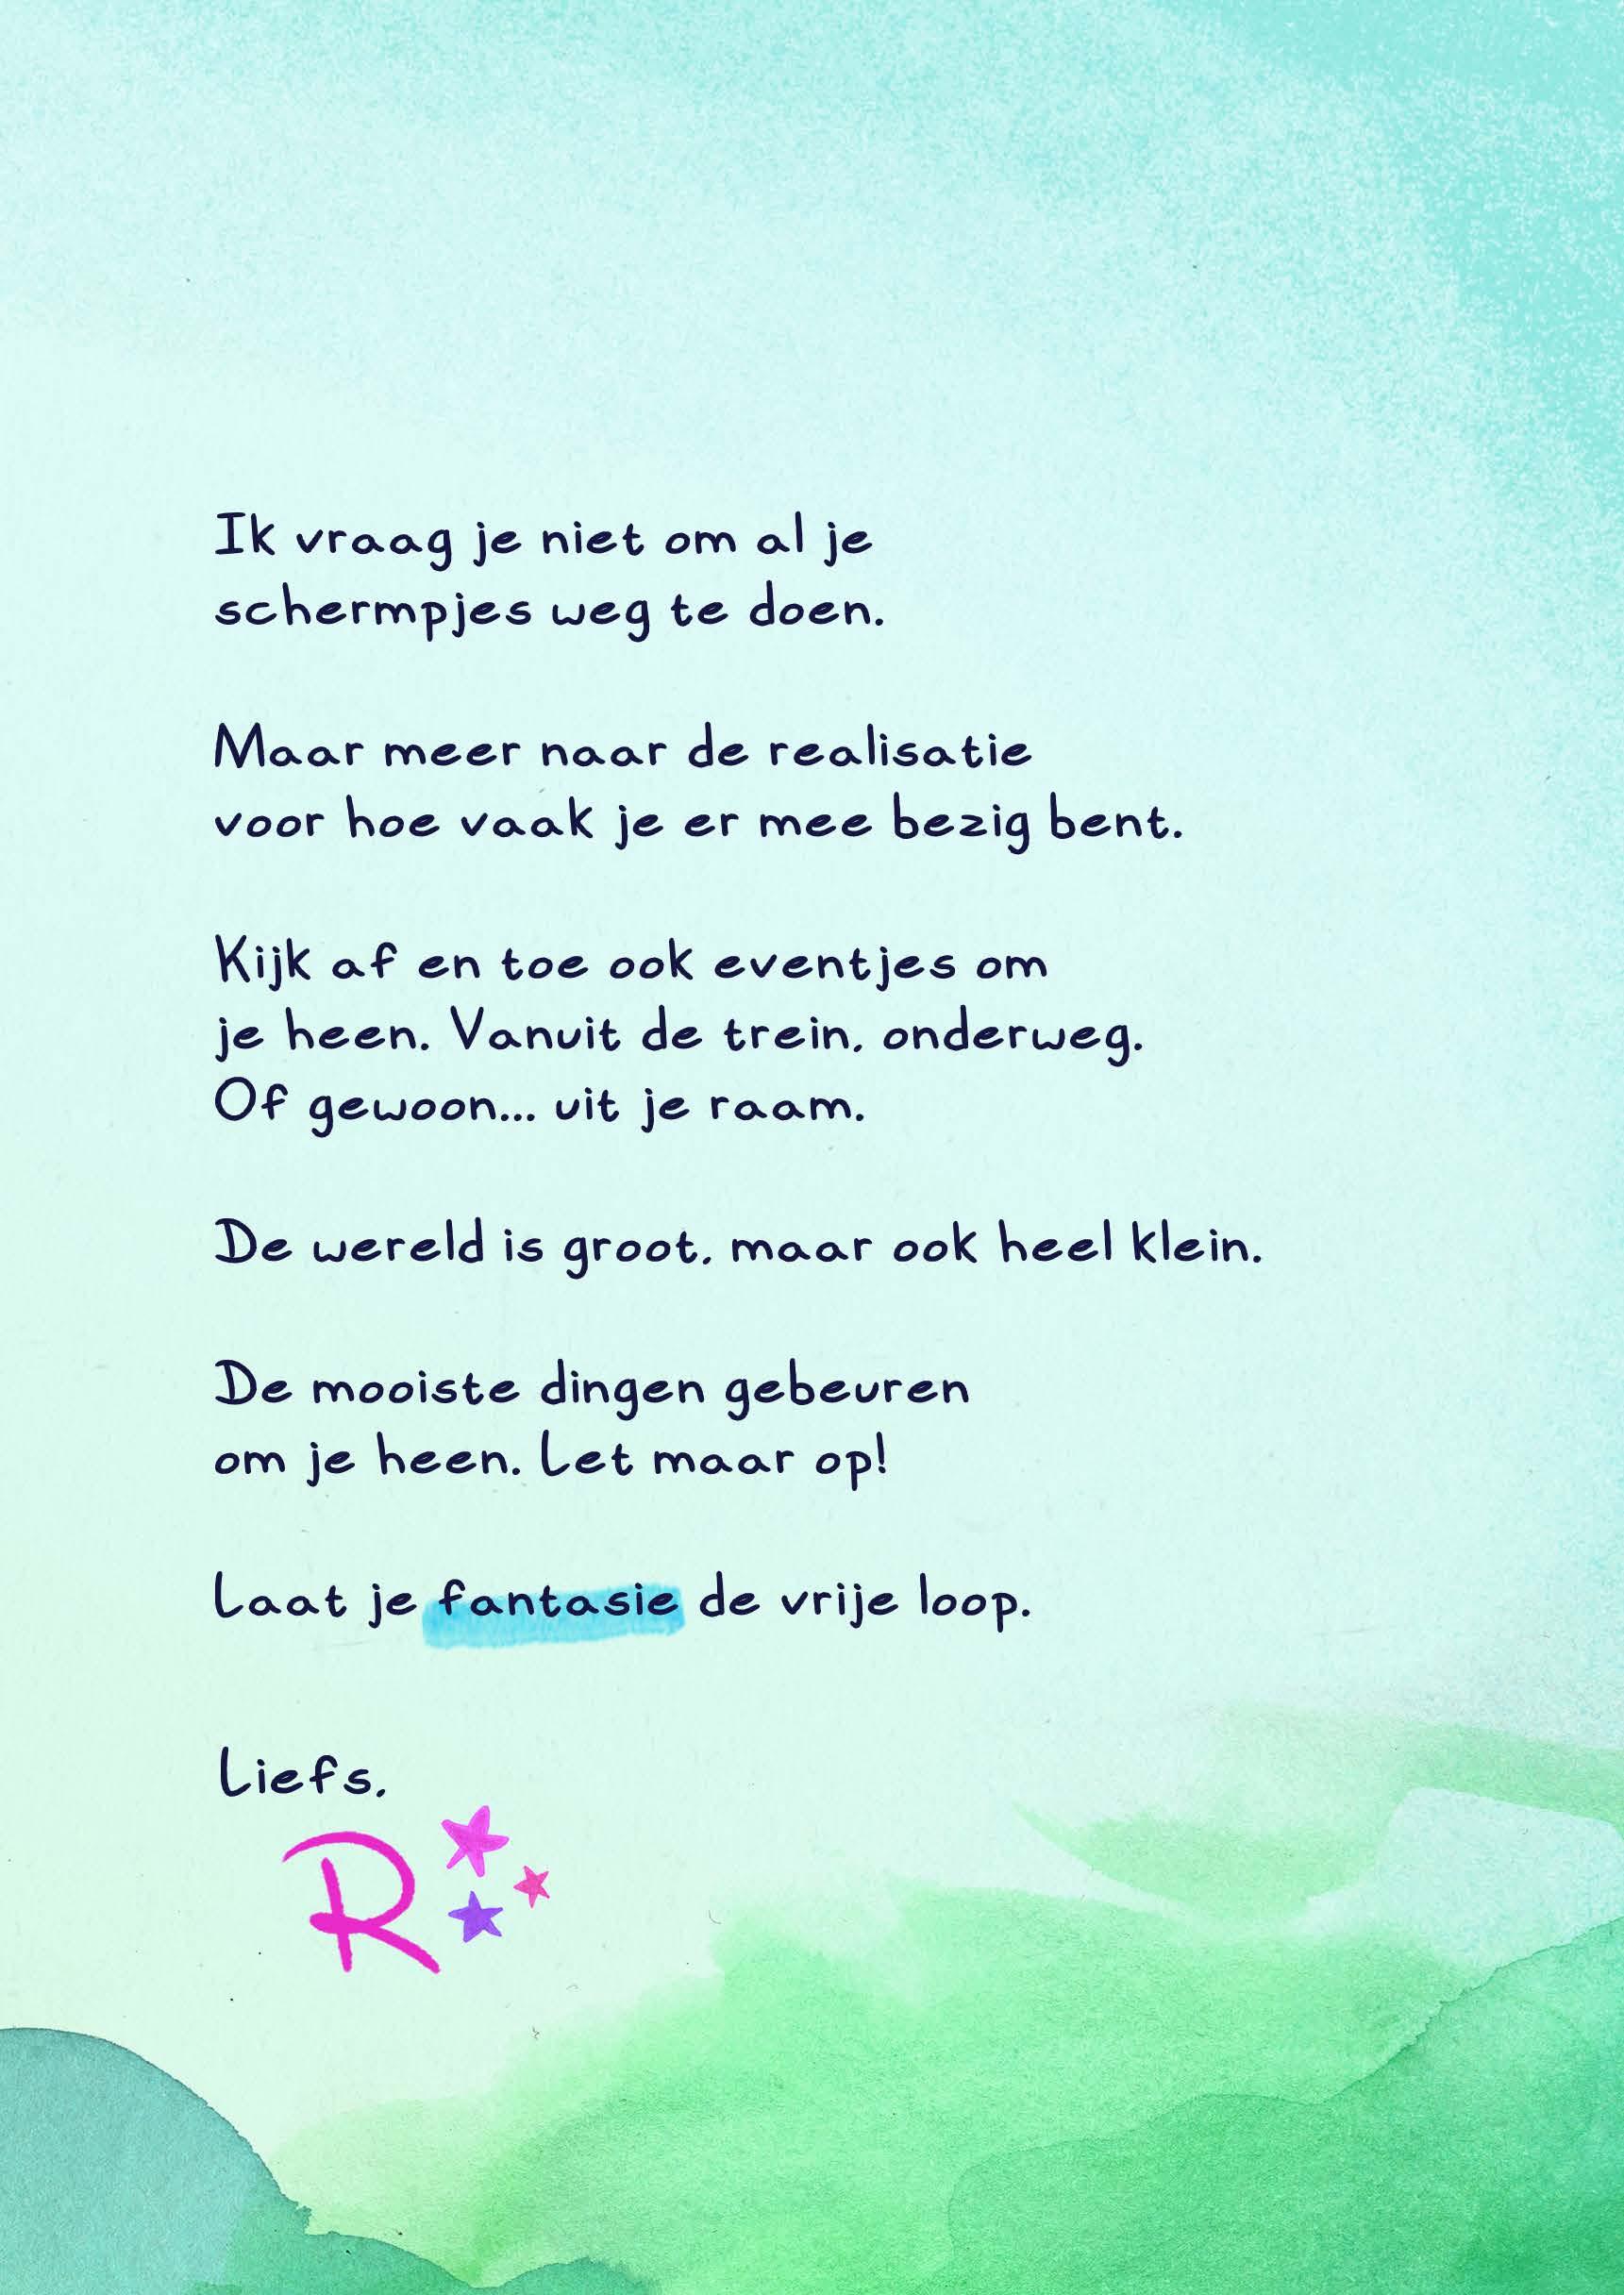 Ik vraag je niet om al je
schermpjes weg te doen.
Maar meer naar de realisatie
voor hoe vaak je er mee bezig bent.
Kijk af en toe ook eventjes om
je heen. Vanuit de trein, onderweg.
Of gewoon... uit je raam.
De wereld is groot, maar ook heel klein.
De mooiste dingen gebeuren
om je heen. Let maar op!
Laat je fantasie de vrije loop.
Liefs,
R